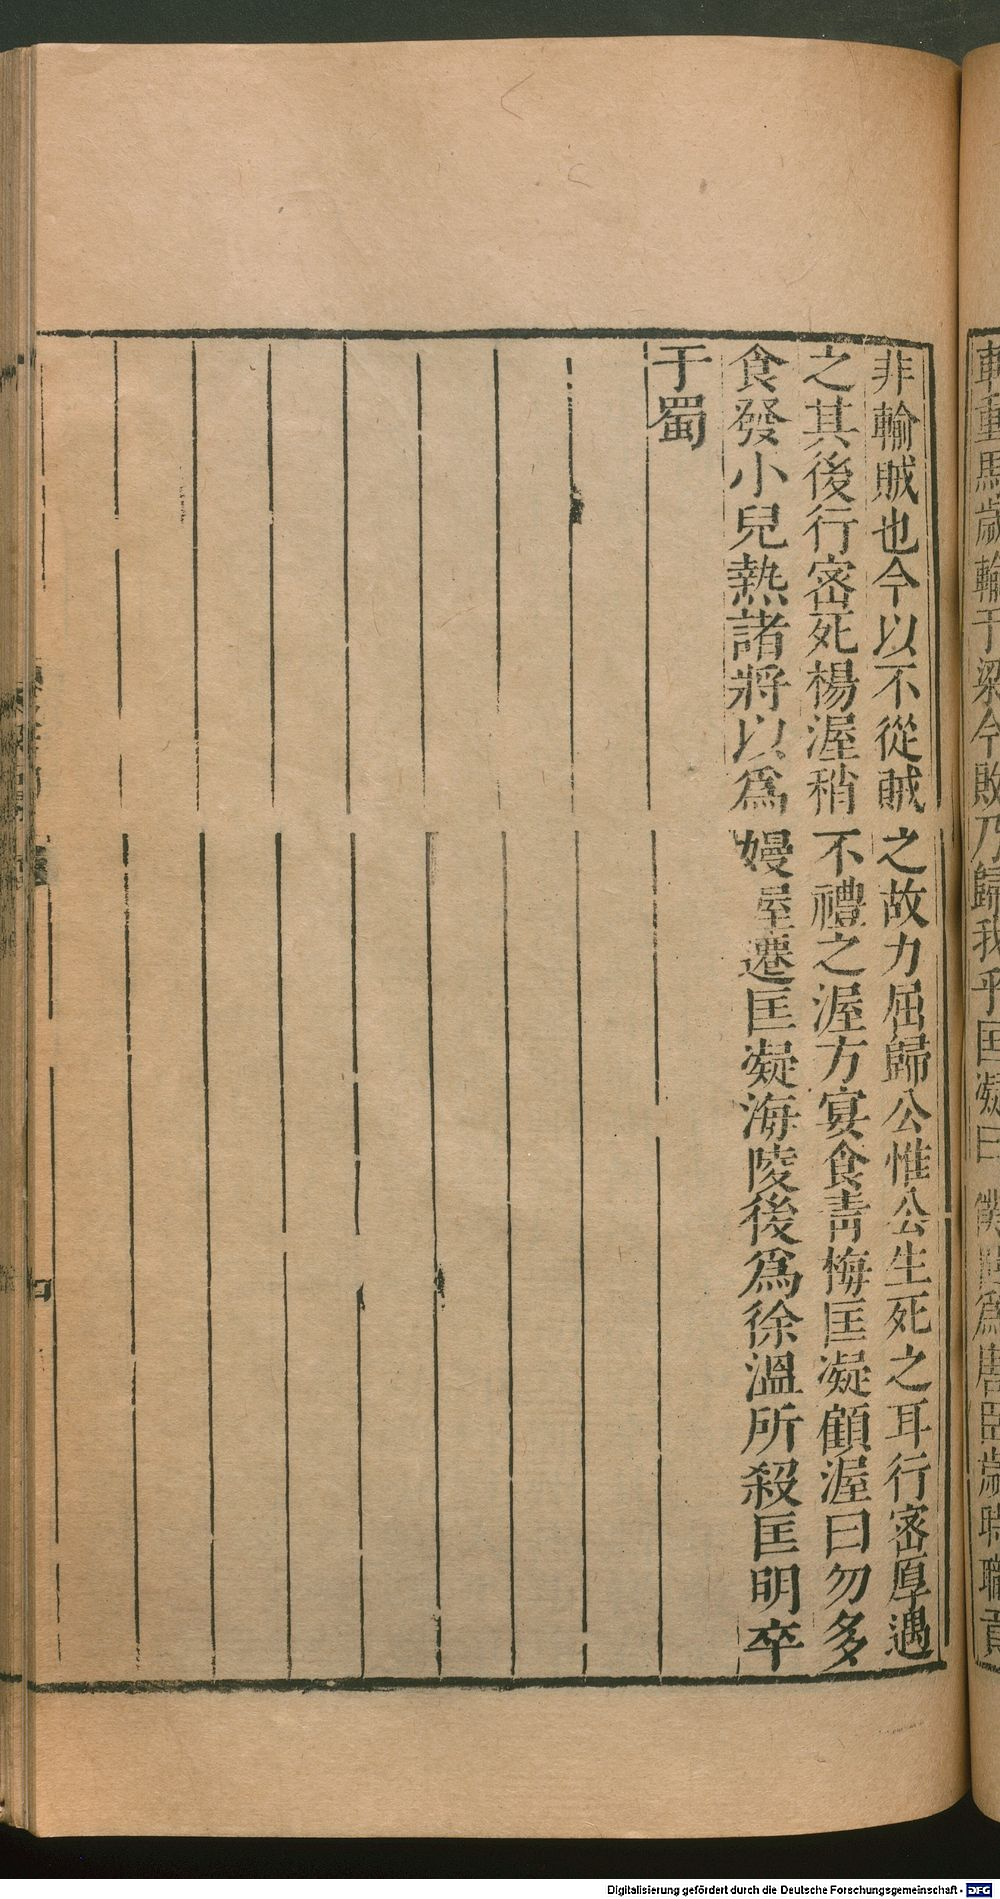 非輸賊也今以不從賊之故力屈歸公惟公生死之耳行宻厚遇
之其後行宻死楊渥稍不禮之渥方宴食靑梅匡凝顧渥曰勿多
食發小兒熱諸將以爲嫚渥遷匡凝海陵後爲徐溫所殺匡明卒
于蜀
Digitalisierung gefördert durch die Deutsche Forschungsgemeinschaft - DFG